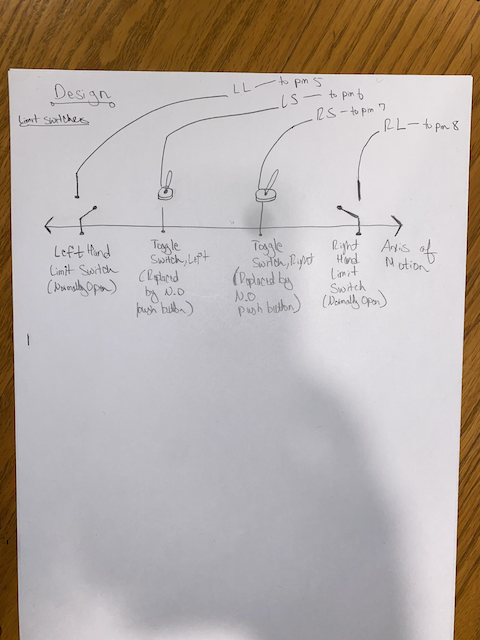 Design
Limit switches
LL — to pin 5
LS — to pin 6
RS — to pin 7
RL — to pin 8
Left Hand
Limit Switch
(Normally Open)
Toggle
Switch, Left
(Replaced
by N.O
push button)
Toggle
Switch, Right
(Replaced by
N.O
push button)
Right
Hand
Limit
Switch
(Normally Open)
Axis of
Motion